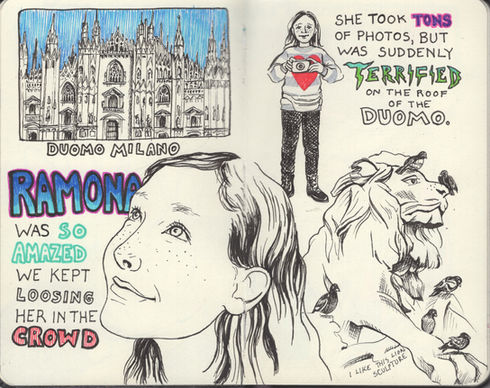 DUOMO MILANO
RAMONA
WAS SO
AMAZED
WE KEPT
LOOSING
HER IN THE
CROWD
SHE TOOK TONS
OF PHOTOS, BUT
WAS SUDDENLY
TERRIFIED
ON THE ROOF
OF THE
DUOMO.
I LIKE THIS LION
SCULPTURE